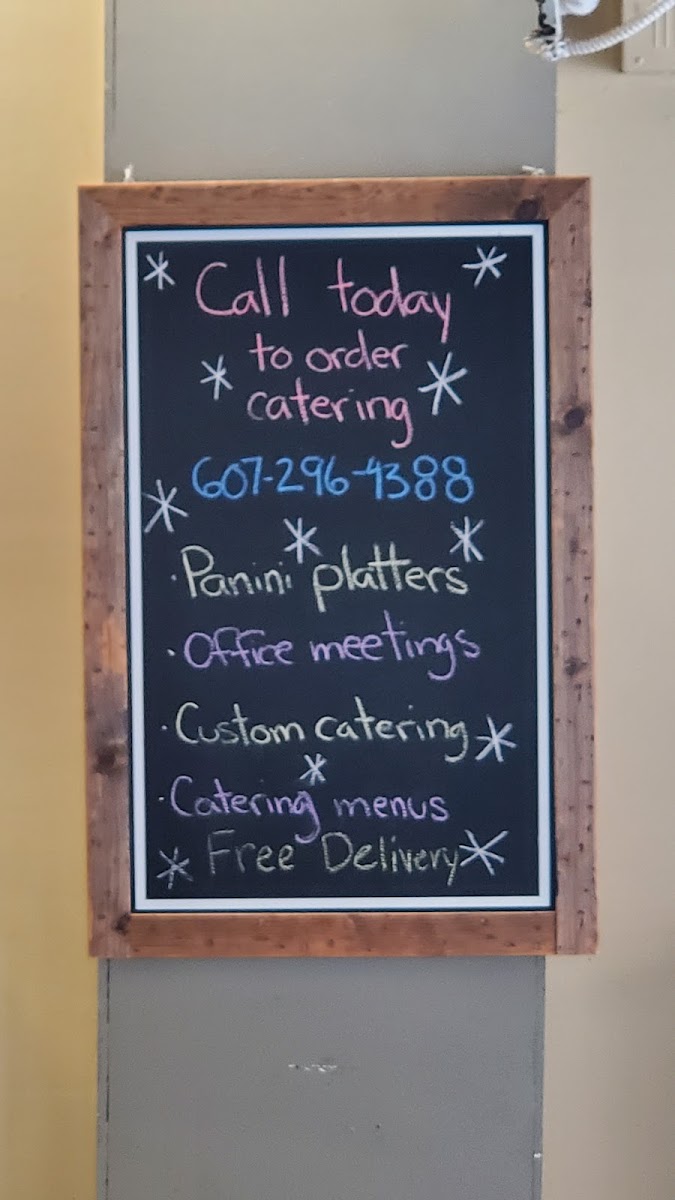 Call today
to order
catering
607-296-4388
· Panini platters
· Office meetings
· Custom catering
· Catering menus
Free Delivery